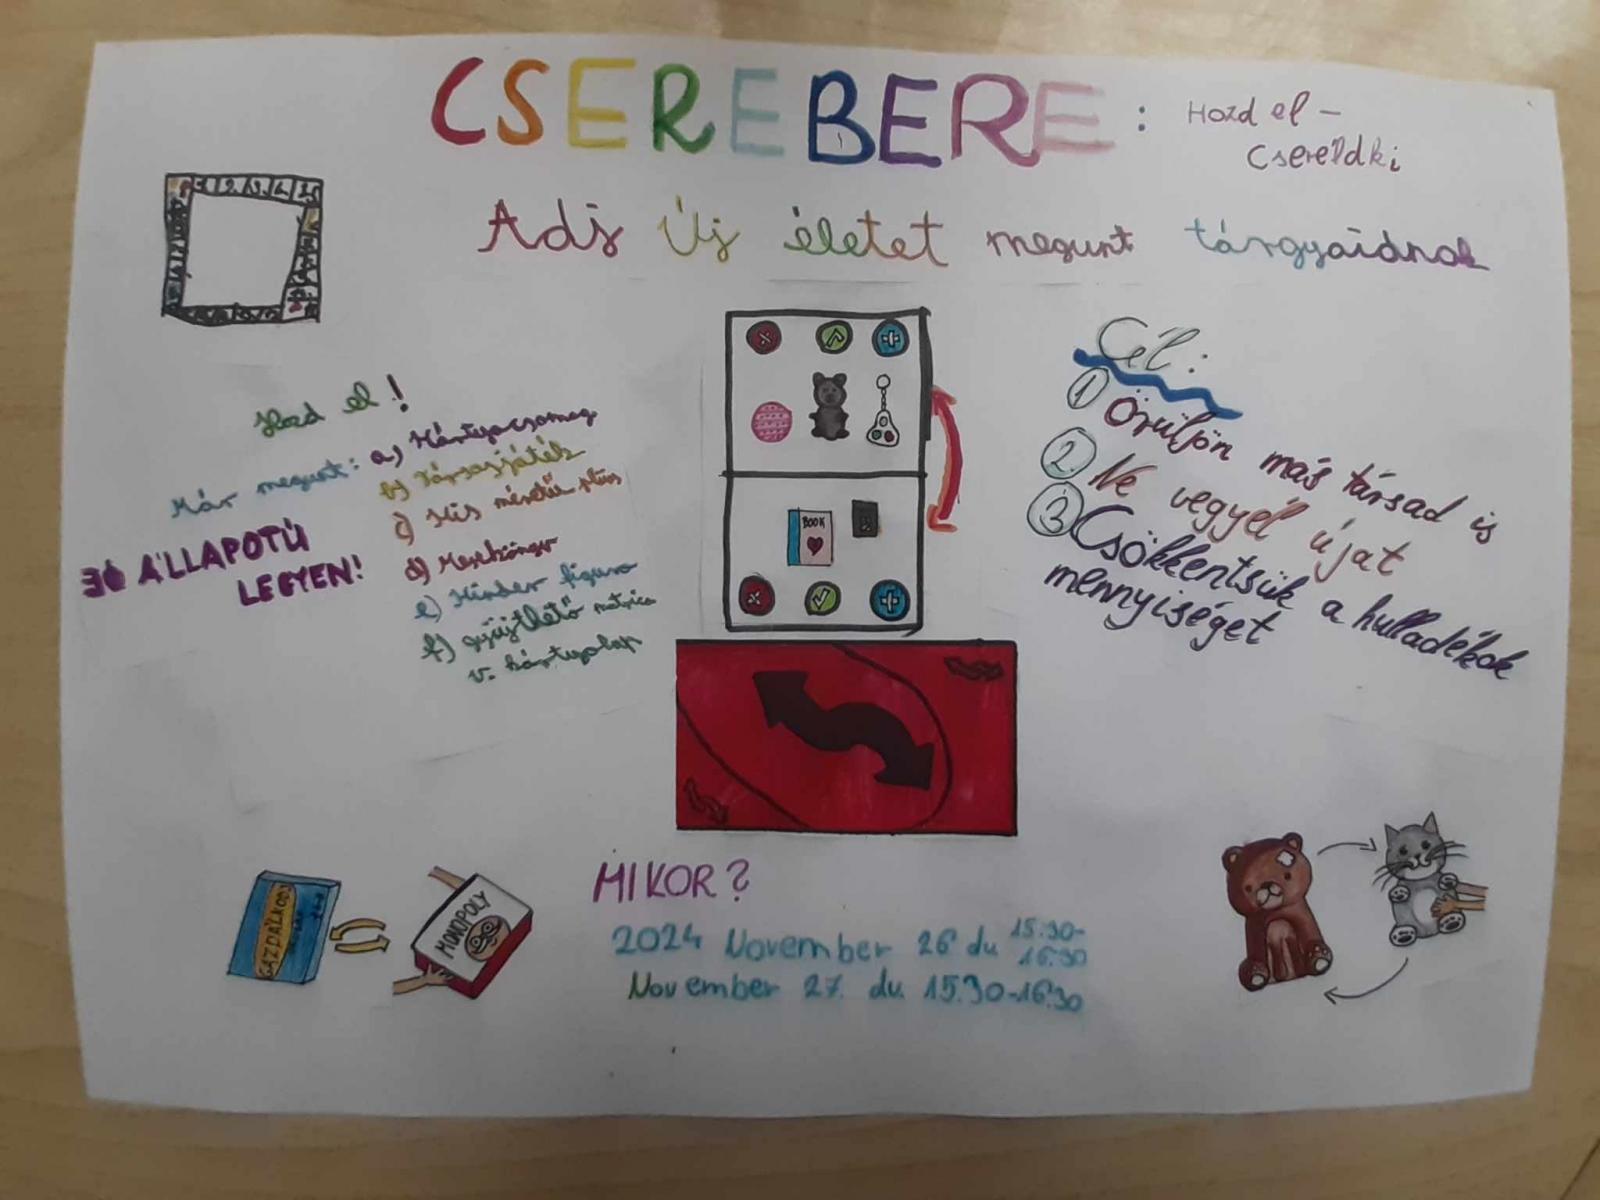 CSEREBERE: Hozd el -
Cseréld ki
Adj Új életet megunt tárgyaidnak
Hozd el!
Már megunt: a) Kártyacsomag
b) Társasjáték
c) Kis méretű plüss
d) Mesekönyv
e) Kinder figura
f) gyűjthető matrica
v. kártyalap
JÓ ÁLLAPOTÚ
LEGYEN!
BOOK
Cél:
1 Örüljön más társad is
2 Ne vegyél újat
3 Csökkentsük a hulladékok
mennyiséget
GAZDÁLKODJ
MONOPOLY
MIKOR?
2024 November 26 du 15:30-
16:30
November 27. du. 15:30-16:30